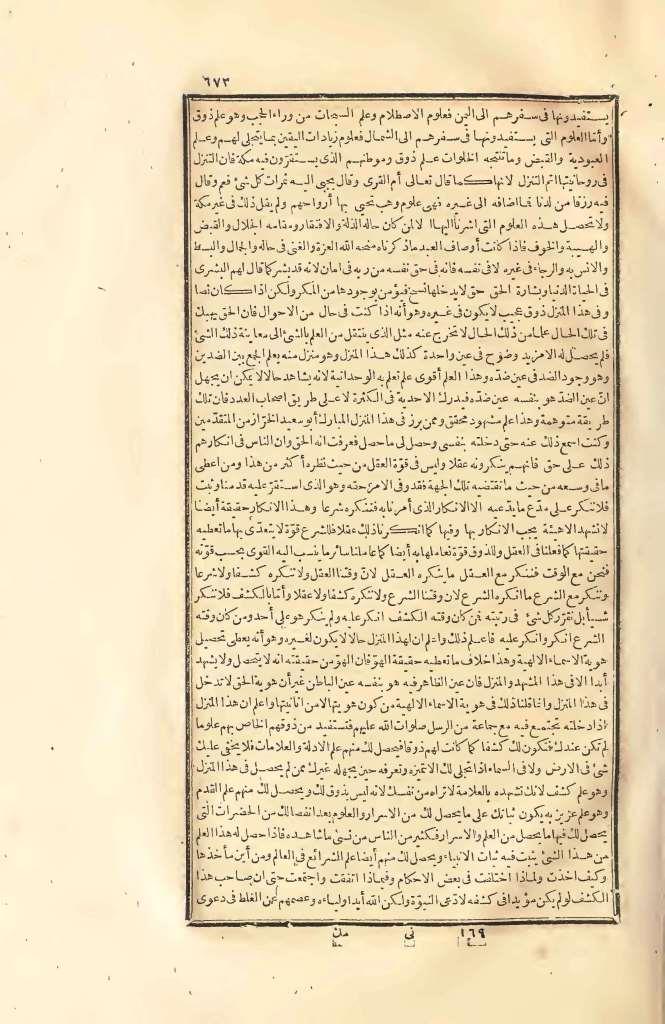 ٦٧٣
يستفيدونها في سفرهم الى اليمن فعلوم الاصطلام وعلم السبحات من وراء الحجب وهو علم ذوق
وأما العلوم التي يستفيدونها في سفرهم الى الشمال فعلوم زيادات اليقين بما يتجلى لهم وعلم
العبودية والقبض وما تنتجه الخلوات علم ذوق وموطنهم الذي يستقرّون فيه مكة فان التنزل
في روحانيتها أتم التنزل لانها كما قال تعالى أم القرى وقال يجبي اليه ثمرات كل شئ فعم وقال
فيه رزقا من لدنا فما اضافه الى غيره فهي علوم وهب تحيي بها أرواحهم ولم يقل ذلك في غير مكة
ولا تحصل هذه العلوم التي اشرنا اليها الا لمن كان حاله الذلة والافتقار ومقامه الجلال والقبض
والهيبة والخوف فاذا كانت أوصاف العبد ما ذكرناه منحه الله العزة والغنى في حاله والجمال والبسط
والانس به والرجاء في غيره لا في نفسه فانه في حق نفسه من ربه في امان لانه قد بشر كما قال لهم البشرى
في الحياة الدنيا وبشارة الحق حق لا يدخلها نسخ فيؤمن بوجودها من المكر ولكن اذا كان نصا
وفي هذا المنزل ذوق عجيب لا يكون في غيره وهو أنه اذا كنت في حال من الاحوال فان الحق يهبك
في تلك الحال علما من ذلك الحال لا تخرج عنه مثل الذي ينتقل من العلم بالشئ الى معاينة ذلك الشئ
فلم يحصل له الا مزيد وضوح في عين واحدة كذلك هذا المنزل وهو منزل منه يعلم الجمع بين الضدين
وهو وجود الضد في عين ضده وهذا العلم أقوى علم تعلم به الوحدانية لانه يشاهد حالا لا يمكن ان يجهل
انّ عين الضدّ هو بنفسه عين ضدّه فيدرك الاحدية في الكثرة لا على طريق اصحاب العدد فان تلك
طريقة متوهمة وهذا علم مشهود محقق وممن برز في هذا المنزل المبارك أبو سعيد الخرّاز من المتقدّمين
وكنت اسمع ذلك عنه حتى دخلته بنفسي وحصل لي ما حصل فعرفت انه الحق وان الناس في انكارهم
ذلك على حق فانهم ينكرونه عقلا وليس في قوّة العقل من حيث نظره أكثر من هذا ومن اعطى
ما في وسعه من حيث ما تقتضيه تلك الجهة فقد وفى الامر حقه وهو الذي استقرّ عليه قدمنا وثبت
فلا ننكر على مدّع ما يدّعيه الا الانكار الذي أمرنا به فننكره شرعا وهذا الانكار حقيقة أيضا
لا تشهد الا هيئة يجب الانكار بها وفيها كما انكرنا ذلك عقلا فللشرع قوّة لا يتعدّى بها ما تعطيه
حقيقتها كما فعلنا في العقل وللذوق قوة نعامله بها أيضا كما عاملنا سائر ما ينسب اليه القوى بحسب قوّته
فنحن مع الوقت فننكر مع العقل ما ينكره العقل لانّ وقتنا العقل ولا ننكره كشفا ولا شرعا
وننكر مع الشرع ما انكره الشرع لان وقتنا الشرع ولا ننكره كشفا ولا عقلا وأما الكشف فلا ننكر
شيأ بل نقرّر كل شئ في رتبته فمن كان وقته الكشف انكر عليه ولم ينكر هو على أحد ومن كان وقته
الشرع انكر وانكر عليه فاعلم ذلك واعلم ان لهذا المنزل حالا لا يكون لغيره وهو أنه يعطي تحصيل
هوية الاسماء الالهية وهذا خلاف ما تعطيه حقيقة الهوّ فان الهوّ من حقيقته انه لا يتحصل ولا يشهد
أبدا الا في هذا المشهد والمنزل فان عين الظاهر فيه هو بنفسه عين الباطن غير أن هوية الحق لا تدخل
في هذا المنزل وانما قلنا ذلك في هوية الاسماء الالهية من كون هويتها لا من انانيتها واعلم ان هذا المنزل
اذا دخلته تجتمع فيه مع جماعة من الرسل صلوات الله عليهم فتستفيد من ذوقهم الخاص بهم علوما
لم تكن عندك فتكون لك كشفا كما كانت لهم ذوقا فيحصل لك منهم علم الادلة والعلامات فلا يخفى عليك
شئ في الارض ولا في السماء اذا تجلى لك الا تميزه وتعرفه حين يجهله غيرك ممن لم يحصل في هذا المنزل
وهو علم كشف لانك تشهده بالعلامة لا تراه من نفسك لانه ليس بذوق لك ويحصل لك منهم علم القدم
وهو علم عزيز به يكون ثباتك على ما يحصل لك من الاسرار والعلوم بعد انفصالك من الحضرات التي
يحصل لك فيها ما يحصل من العلوم والاسرار فكثير من الناس من نسي ما شاهده فاذا حصل له هذا العلم
من هذا الشئ يثبت فيه ثبات الانبياء ويحصل لك منهم أيضا علم الشرائع في العالم ومن أين مأخذها
وكيف اخذت ولماذا اختلفت في بعض الاحكام وفيما ذا اتفقت واجتمعت حتى ان صاحب هذا
الكشف لو لم يكن مؤيدا في كشفه لادّعى النبوّة ولكن الله أيد أولياءه وعصمهم عن الغلط في دعوى
١٦٩ ني مك